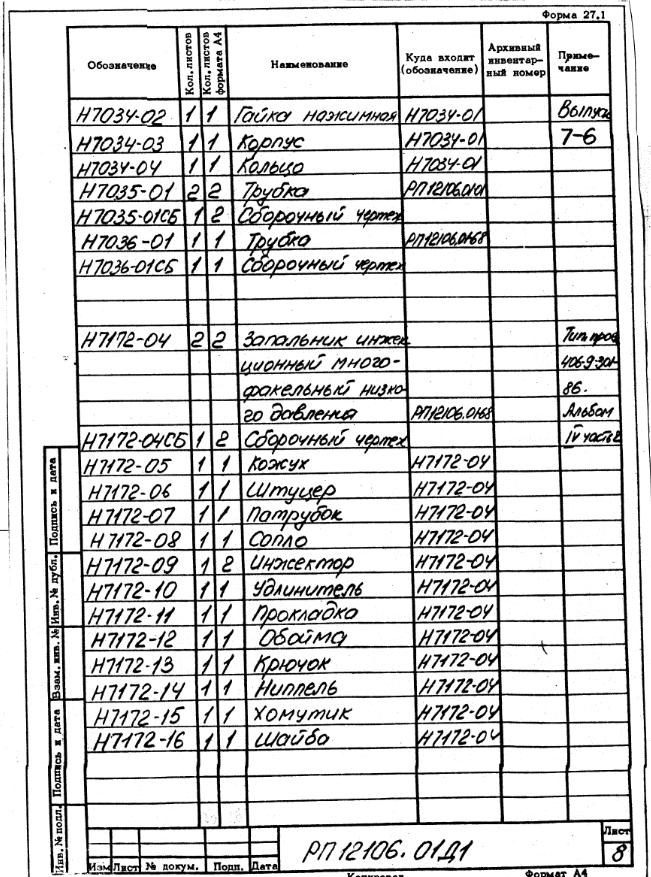 Форма 27.1
Обозначение Кол. листов Кол. листов формата А4 Наименование Куда входит (обозначение) Архивный инвентарный номер Примечание
Н7034-02 1 1 Гайка нажимная Н7034-01 Выпуск
Н7034-03 1 1 Корпус Н7034-01 7-6
Н7034-04 1 1 Кольцо Н7034-01
Н7035-01 2 2 Трубка
Н7035-01СБ 1 2 Сборочный чертеж
Н7036-01 1 1 Трубка РП12106.0168
Н7036-01СБ 1 1 Сборочный чертеж
Н7172-04 2 2 Запальник инжек Тип. проек
ционный много- 406-9-301-
факельный низко- 86.
го давления РП12106.0168 Альбом
Н7172-04СБ 1 2 Сборочный чертеж IV часть 2
Н7172-05 1 1 Кожух Н7172-04
Н7172-06 1 1 Штуцер Н7172-04
Н7172-07 1 1 Патрубок Н7172-04
Н7172-08 1 1 Сопло Н7172-04
Н7172-09 1 2 Инжектор Н7172-04
Н7172-10 1 1 Удлинитель Н7172-04
Н7172-11 1 1 Прокладка Н7172-04
Н7172-12 1 1 Обойма Н7172-04
Н7172-13 1 1 Крючок Н7172-04
Н7172-14 1 1 Ниппель Н7172-04
Н7172-15 1 1 Хомутик Н7172-04
Н7172-16 1 1 Шайба Н7172-04
Инв. № подл. Подпись и дата Взам. инв. № Инв. № дубл. Подпись и дата
Изм Лист № докум. Подп. Дата
РП 12106.01Д1
Лист
8
Копировал Формат А4